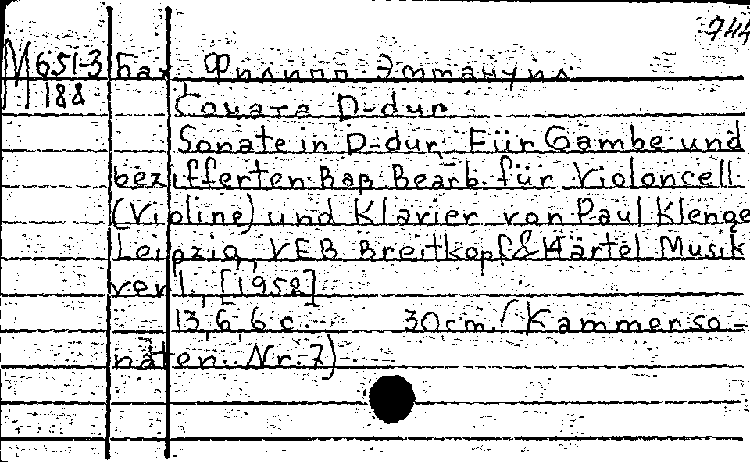 744
М 651-3 Бах, Филипп Эммануил.
188 Соната D-dur
Sonate in D-dur. Für Gambe und
bezifferten Baß Bearb. für Violoncell
(Violine) und Klavier von Paul Klenge
Leipzig, VEB Breitkopf & Härtel Musik
verl., [1958]
13, 6, 6 с. 30 cm. (Kammerso-
naten. Nr. 7)